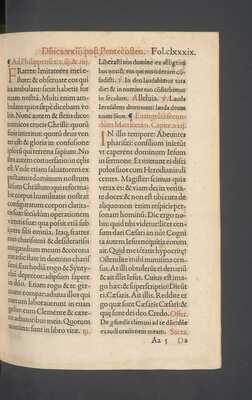 Dñica.xxiij.post Pentecosten. Fol.clxxxix.
Ad Philippenses.iij.& iiij.
Fratres: Imitatores mei e-
stote: & obseruate eos qui
ita ambulant: sicut habetis for
mam nostrã. Multi enim am-
bulant quos sepe dicebam vo-
bis. Nunc autem & flens dico:
inimicos crucis Christi: quorũ
finis interitus: quorũ deus ven
ter est: & gloria in confusione
ipsorum: qui terrena sapiunt.
Nostra autẽ conuersatio in celis
est. Vnde etiam saluatorem ex
pectamus dominum nostrum
Iesum Christum: qui reforma-
bit corpus humilitatis nostre:
configuratum corpori clarita-
tis sue: secundum operationẽ
virtutis sue: qua etiam possit sub
ijcere sibi omnia. Itaq; fratres
mei charissimi & desideratissimi
gaudium meum & corona
mea: sic state in domino charis
simi. Euchodiã rogo & Synty-
chẽ deprecor: idipsum sapere
in dño. Etiam rogo & te ger-
mane compar: adiuua illas que
mecum laborauerunt in euan-
gelio cum Clemente & cæte-
ris adiutoribus meis: Quorum
nomina: sunt in libro vitæ.
Liberasti nos domine ex affligẽtibus
nos: & eos qui nos oderunt cõ-
fudisti. In deo laudabimur tota
die: & in nomine tuo cõfitebimur
in seculum. Alleluia. Lauda
Ierusalem dominum: lauda deum
tuum Sion. Euangelij secun-
dum Mattheum. Capite.xxij.
In illo tempore: Abeuntes
pharisæi: consilium inierũt
vt caperent dominum Iesum
in sermone. Et mittunt ei disci-
pulos suos cum Herodianis di
centes. Magister: scimus quia
verax es: & viam dei in verita-
te doces: & non est tibi cura de
aliquo: non enim respicis per-
sonam hominis. Dic ergo no-
bis: quid tibi videtur: licet cen-
sum dari Cæsari an nõ? Cogni
ta autem Iesus nequitia eorum
ait. Quid me tẽtatis hypocritæ?
Ostendite mihi numisma cen-
sus. At illi obtulerũt ei denariũ
& ait illis Iesus. Cuius est ima-
go hæc: & superscriptio? Dicũt
ei. Cæsaris. Aït illis. Reddite er
go quæ sunt Cæsaris Cæsari: &
quę sunt dei: deo. Credo. Offer.
De profundis clamaui ad te domine:
exaudi orationem meam. Secre.
Aa 5 Da